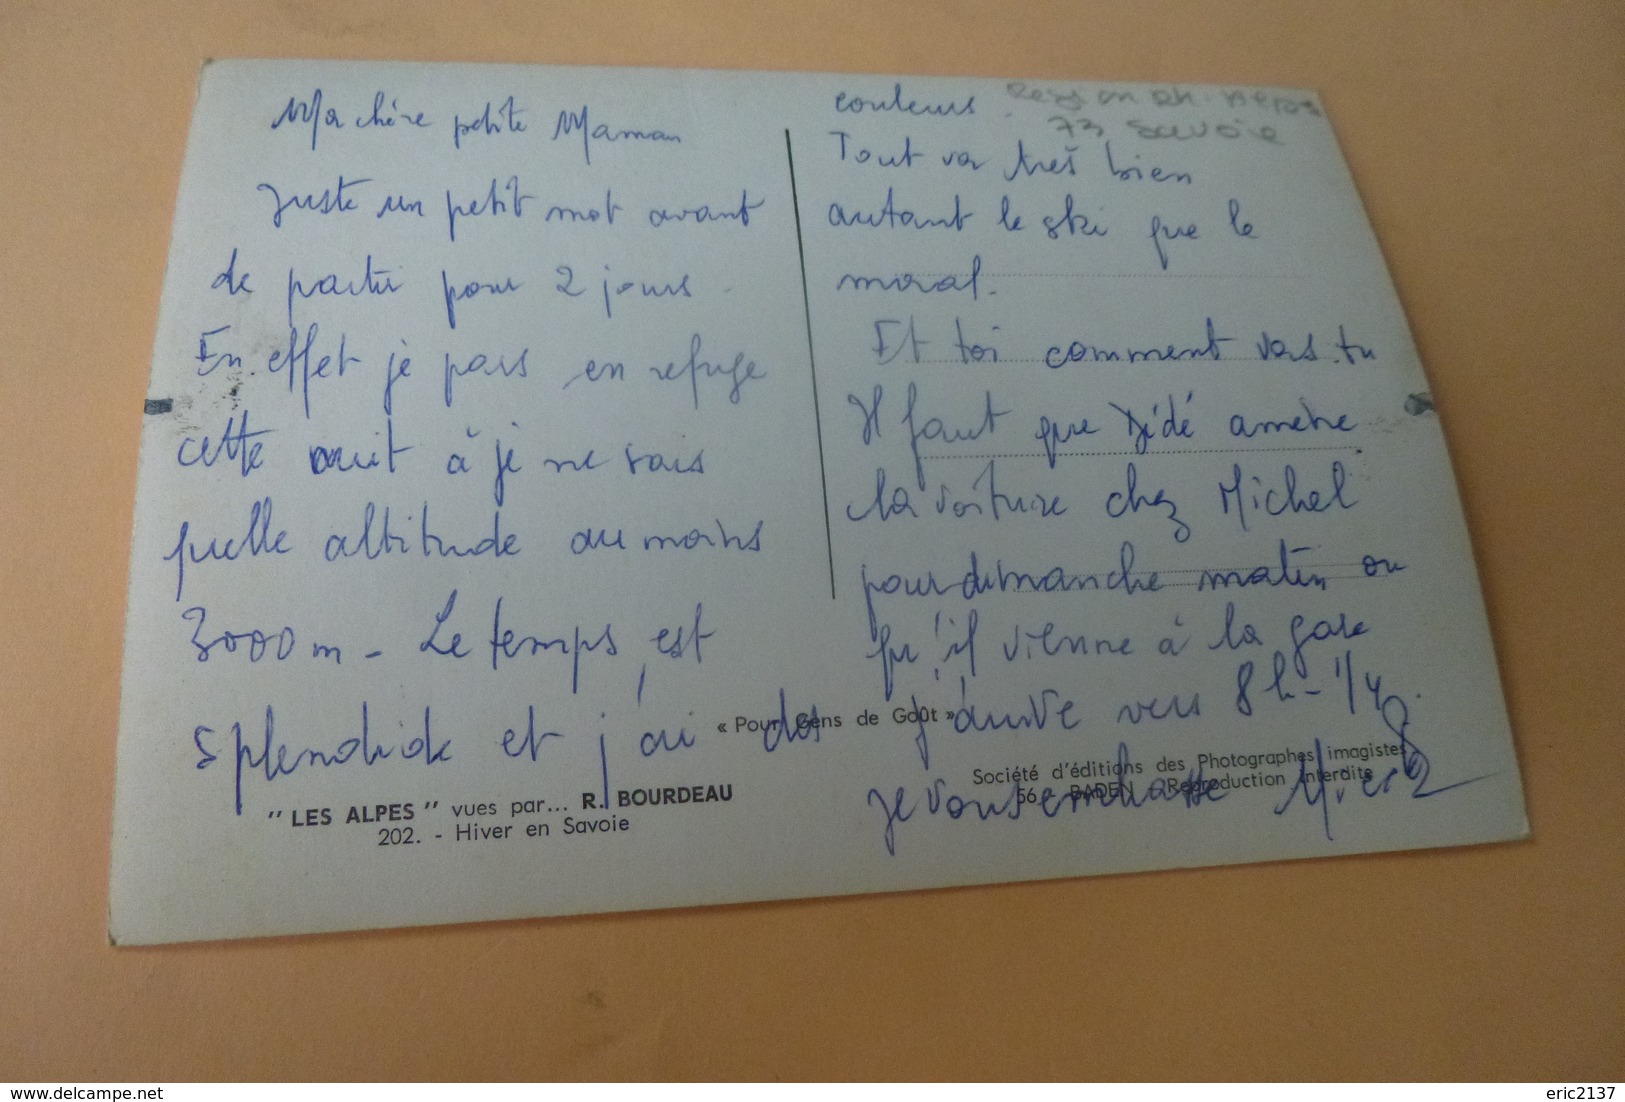 Ma chère petite Maman
Juste un petit mot avant
de partir pour 2 jours.
En effet je pars en refuge
cette nuit à je ne sais
quelle altitude au moins
3000 m - Le temps est
splendide et j'ai des
couleurs.
Tout va très bien
autant le ski que le
moral.
Et toi comment vas.tu
Il faut que Dédé amène
la voiture chez Michel
pour dimanche matin ou
qu'il vienne à la gare
j'arrive vers 8h-1/4.
Je vous embrasse
73 Savoie
« Pour Gens de Goût »
" LES ALPES " vues par... R. BOURDEAU
202. - Hiver en Savoie
Société d'éditions des Photographes imagistes
56 - BADEN - Reproduction Interdite
www.delcampe.net
eric2137